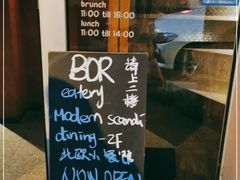 brunch
11:00 till 16:00
lunch
11:00 till 14:00
BOR
eatery
Modern scandi
dining - 2F
NOW OPEN
請上二樓